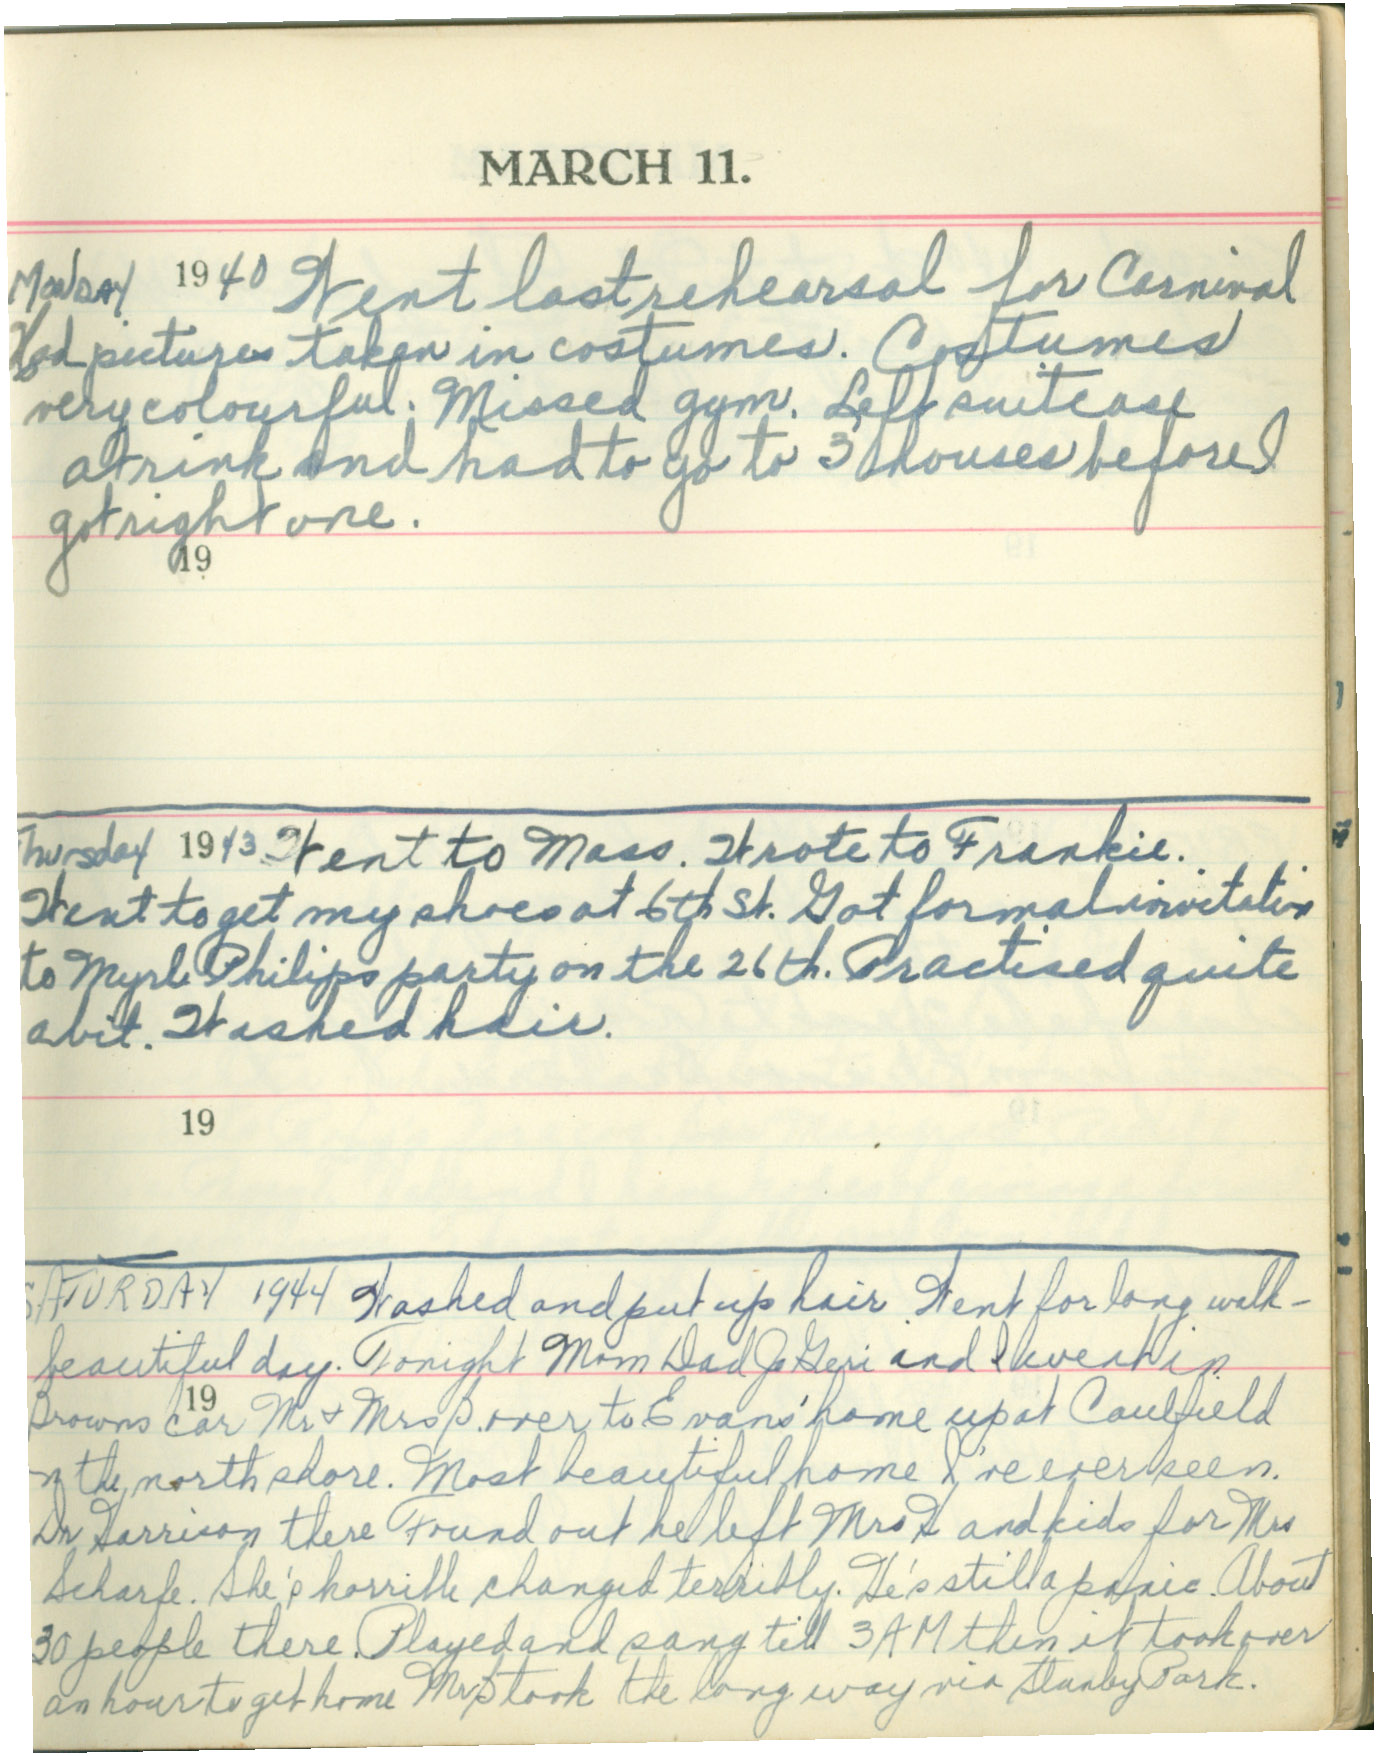 MARCH 11.
Monday 1940 Went last rehearsal for Carnival
Had pictures taken in costumes. Costumes
very colourful. Missed gym. Left suitcase
at rink and had to go to 3 houses before I
got right one.
19
Thursday 1943 Went to Mass. Wrote to Frankie.
Went to get my shoes at 6th St. Got formal invitation
to Myrle Philips party on the 26th. Practised quite
a bit. Washed hair.
19
SATURDAY 1944 Washed and put up hair. Went for long walk -
beautiful day. Tonight Mom Dad Jo Geri and I went in
19
Browns car Mr & Mrs B. over to Evans' home up at Caulfield
on the north shore. Most beautiful home I've ever seen.
Dr Harrison there Found out he left Mrs H and kids for Mrs
Scharfe. She's horrible changed terribly. He's still a panic. About
30 people there. Played and sang till 3 AM then it took over
an hour to get home Mr B took the long way via Stanley Park.